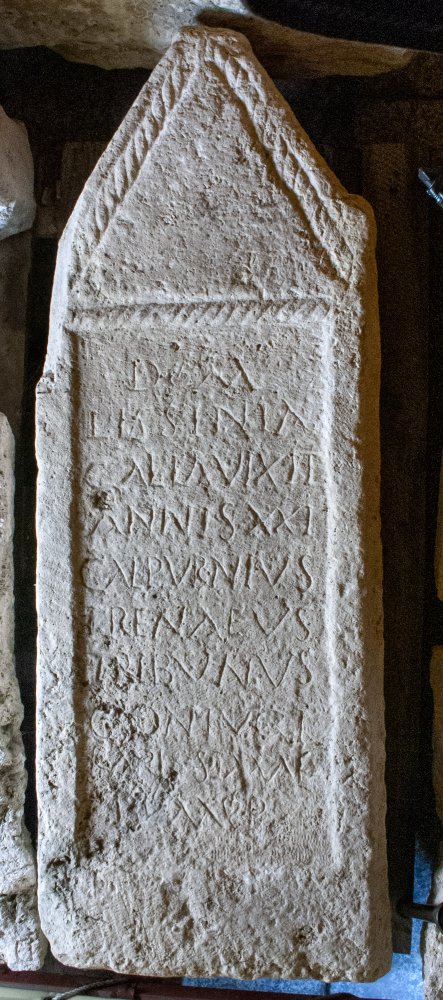 D M
LICINIA
GALLA VIXIT
ANNIS XXI
CALPVRNIVS
IRENAEVS
TRIBVNVS
CONIVGI